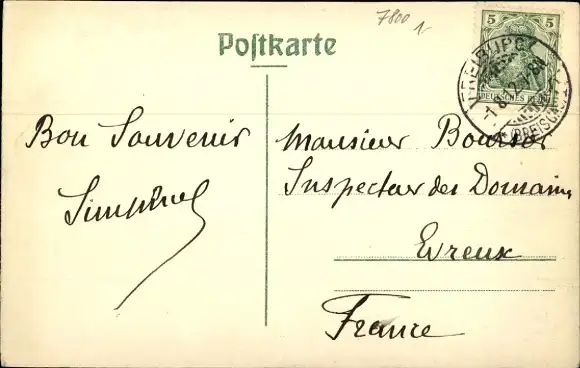 7800
Postkarte
5 5
DEUTSCHES REICH
FREIBURG
(BREISGAU)
Bon Souvenir
Monsieur Boursor
Inspecteur des Domaines
Evreux
France